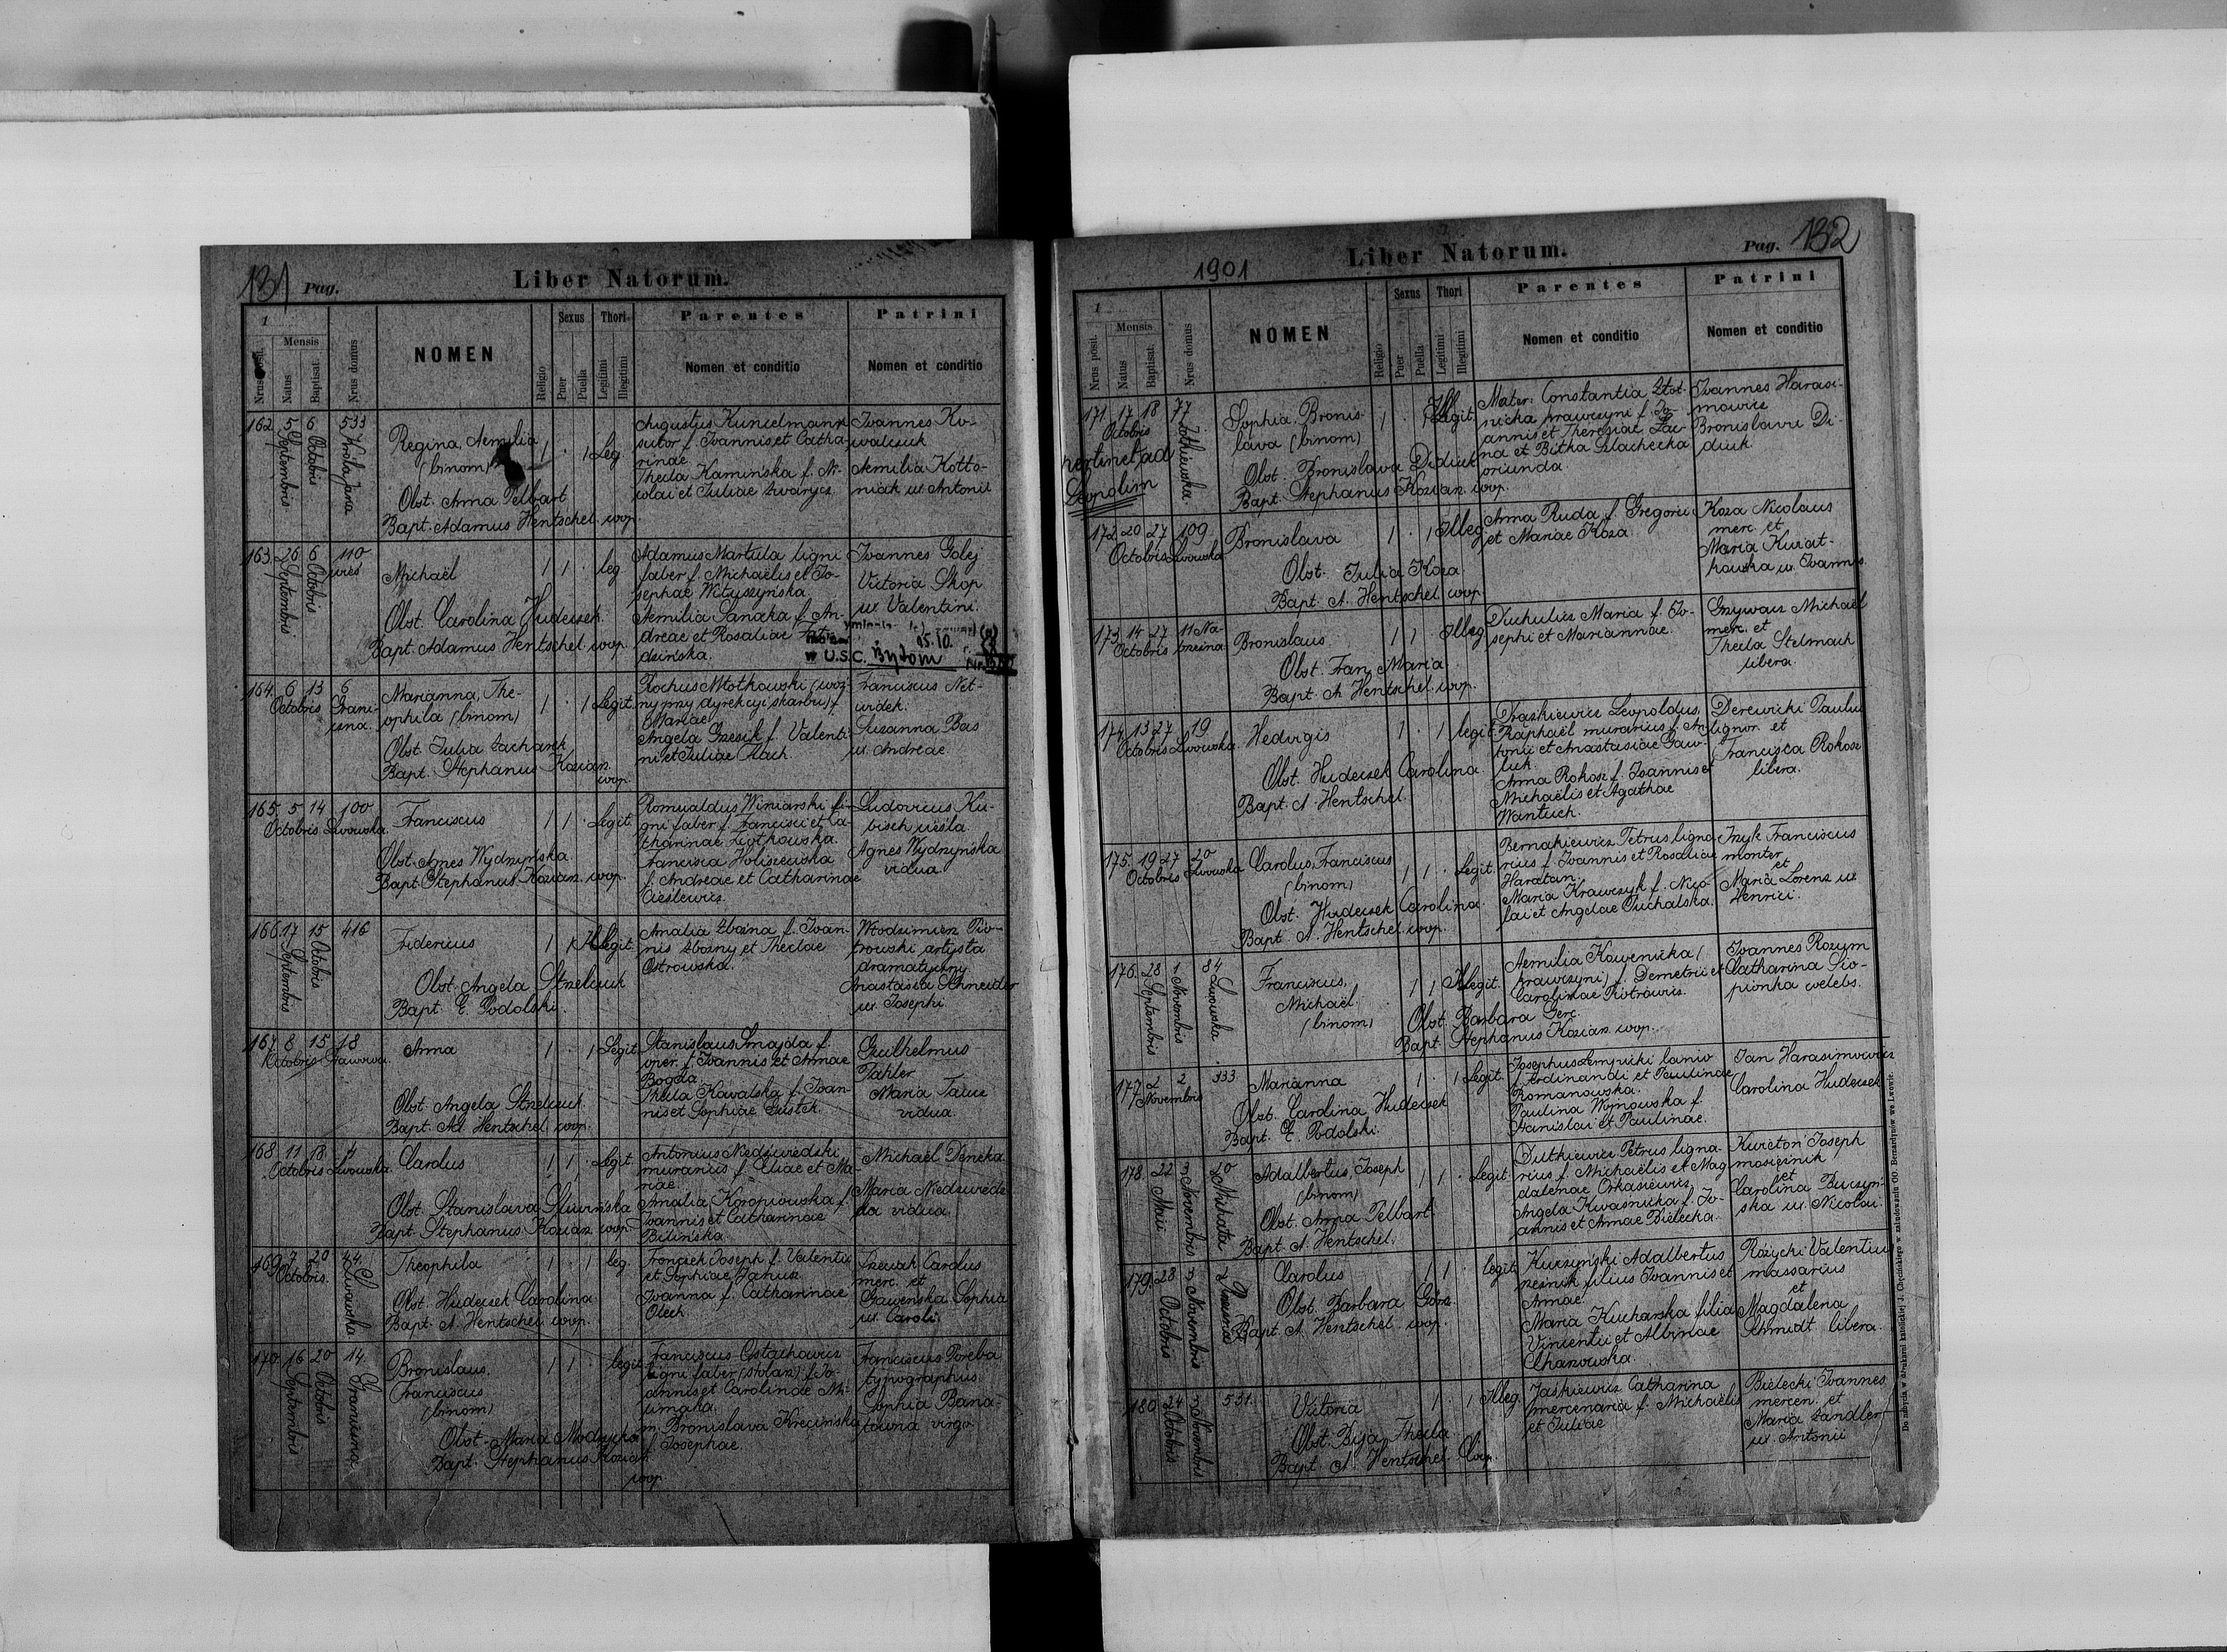 131 Pag.
Liber Natorum.
1
Nrus posit.
Mensis
Natus
Baptisat.
Nrus domus
NOMEN
Religio
Sexus
Puer
Puella
Thori
Legitimi
Illegitimi
Parentes
Nomen et conditio
Patrini
Nomen et conditio
162. 5 Septembris 6 Octobris 533 Króla Jana
Regina, Aemilia
(binom)
1 . 1 Leg
Obst. Anna Pelbart
Bapt. Adamus Hentschel coop.
Augustus Kunzelmann
sutor f. Joannis et Catha-
rinae
Thecla Kamińska f. Ni-
colai et Juliae Zwarycz
Joannes Ko-
walczuk
Aemilia Kotto-
niak ux. Antonii
163. 26 Septembris 6 Octobris 110
Michaël
1 1 . leg
Obst. Carolina Hudeczek.
Bapt. Adamus Hentschel coop.
Adamus Martula ligni
faber f. Michaëlis et Jo-
sephae Wituszyńska
Aemilia Sanocka f. An-
dreae et Rosaliae
dzińska.
Joannes Golej
Victoria Skop
ux. Valentini.
w U.S.C. Bytom
164. 6 13 Octobris 6 Grani-
czna.
Marianna, The-
ophila (binom)
1 . 1 Legit.
Obst. Julia Zacharek
Bapt. Stephanus Kozian.
coop.
Rochus Młotkowski (woź-
ny przy dyrekcyi skarbu) f.
Mariae
Angela Grzesik f. Valenti-
ni et Juliae Flach
Franciscus Niet-
widek.
Susanna Bas
ux. Andreae.
165. 5 14 Octobris 100 Lwowska
Franciscus
1 1 . Legit.
Obst. Agnes Wydrzyńska
Bapt. Stephanus Kozian. coop.
Romualdus Winiarski li-
gni faber f. Francisci et Ca-
tharinae Ziotkowska.
Francisca Holiszewska
f. Andreae et Catharinae
Cieślewicz.
Ludovicus Ku-
bisch cieśla
Agnes Wydrzyńska
vidua
166. 17 Septembris 15 Octobris 416
Fridericus
1 1 Illegit.
Obst. Angela Strzelczuk
Bapt. E. Podolski.
Amalia Zbozna f. Joan-
nis Zbozny et Theclae
Ostrowska.
Włodzimierz Pio-
trowski artysta
dramatyczny
Anastasia Schneider
ux. Josephi
167. 8 15 Octobris 18 Stawowa.
Anna
1 . 1 Legit.
Obst. Angela Strzelczuk.
Bapt. Ad. Hentschel coop.
Stanislaus Smajda f.
oper. f. Joannis et Annae
Bogda.
Thecla Kowalska f. Joan-
nis et Sophiae Gustek.
Guilhelmus
Pahler
Maria
vidua.
168. 11 18 Octobris 4 Lwowska.
Carolus
1 1 . Legit.
Obst. Stanislava Śliwińska
Bapt. Stephanus Kozian. coop.
Antonius Niedzwiedzki
murarius f. Eliae et Ma-
riae
Amalia Koropiowska f.
Joannis et Catharinae
Bilińska.
Michaël Deneka
Maria Niedzwiedz-
ka vidua.
169. 7 20 Octobris. 44. Lwowska
Theophila
1 . 1 leg.
Obst. Hudeczek Carolina
Bapt. A. Hentschel coop.
Fronczek Joseph f. Valentii
et Sophiae Janusz
Joanna f. Catharinae
Olech.
Szewak Carolus
merc. et
Gawenska Sophia
ux. Caroli.
170. 16 Septembris 20 Octobris 14. Graniczna
Bronislaus,
Franciscus
(binom)
1 1 . legit
Obst. Maria Modrzycka
Bapt. Stephanus Kozian
coop.
Franciscus Ostachowicz
ligni faber (stolarz) f. Jo-
annis et Carolinae Ni-
m. Bronislava Krecińska
f. Josephae.
Franciscus Poreba
typographus.
Sophia Bana-
tówna virgo.
1901
Liber Natorum.
Pag. 132
1
Nrus posit.
Mensis
Natus
Baptisat.
Nrus domus
NOMEN
Religio
Sexus
Puer
Puella
Thori
Legitimi
Illegitimi
Parentes
Nomen et conditio
Patrini
Nomen et conditio
171. 17 18 Octobris 77 Żółkiewska.
pertinet ad
Leopolim
Sophia, Bronis-
lava (binom)
1 . 1 Illegit.
Obst. Bronislava Didiuk
Bapt. Stephanus Kozian. coop.
Mater: Constantia Złot-
nicka krawczyni f. Jo-
annis et Theresiae Zaj-
na et Bitka Szlachecka
oriunda
Joannes Harasi-
mowicz
Bronislava Di-
diuk.
172. 20 27 Octobris 109 Lwowska
Bronislava
1 . 1 Illeg.
Obst. Julia Koza
Bapt. A. Hentschel coop.
Anna Ruda f. Gregorii
et Mariae Koza
Koza Nicolaus
merc. et
Maria Kwiat-
kowska ux. Joannis
173. 14 27 Octobris 11 Na-
Bronislaus
1 1 Illeg.
Obst. Fran Maria
Bapt. A. Hentschel coop.
Duchulicz Maria f. Jo-
sephi et Mariannae.
Grzywacz Michaël
merc. et
Thecla Stelmach
libera.
174. 13 27 Octobris 19 Lwowska.
Hedvigis
1 . 1 legit.
Obst. Hudeczek Carolina
Bapt. A. Hentschel.
Draskiewicz Leopoldus,
Raphaël murarius f. An-
tonii et Anastasiae Gaw-
luk.
Anna Rokosz f. Joannis et
Michaëlis et Agathae
Wantuch.
Derewicki Paulus
lignor. et
Francisca Rokosz
libera.
175. 19 27 Octobris 20 Lwowska
Carolus, Franciscus
(binom)
1 1 . Legit.
Obst. Hudeczek Carolina.
Bapt. A. Hentschel coop.
Bernakiewicz Petrus ligna-
rius f. Joannis et Rosaliae
Haratan.
Maria Krawczyk f. Nico-
lai et Angelae Puchalska.
Inzyk Franciscus
monter
et
Maria Lorenz ux
Henrici.
176. 28 Septembris 2 Novembris 84 Lwowska.
Franciscus,
Michaël.
(binom)
1 1 Illegit.
Obst. Barbara Gerc.
Bapt. Stephanus Kozian coop.
Aemilia Kowenicka (
krawczyni) f. Demetrii et
Carolinae Piotrowicz.
Joannes Rozum
Catharina Sio-
pionka coelebs.
177. 2 2 Novembris 333
Marianna
1 . 1 Legit.
Obst. Carolina Hudeczek
Bapt. E. Podolski.
Josephus Lempicki lanio
f. Ferdinandi et Paulinae
Romanowska.
Paulina Wojnowska f.
Stanislai et Paulinae.
Jan Harasimowicz
Carolina Hudeczek
178. 22 Maii 3 Novembris 20 Michała
Adalbertus, Joseph
(binom)
1 1 . Legit.
Obst. Anna Pelbart
Bapt. A. Hentschel.
Dutkiewicz Petrus ligna-
rius f. Michaëlis et Mag-
dalenae Orkasiewicz
Angela Kwaśnicka f. Jo-
annis et Annae Bielecka.
Kureton Joseph
mosiężnik
et
Carolina Buczyń-
ska ux. Nicolai.
179. 28 Octobris 3 Novembris 2
Carolus
1 1 . legit
Obst. Barbara Górz.
Bapt. A. Hentschel coop.
Kuczyński Adalbertus
rzeźnik filius Joannis et
Annae.
Maria Kucharska filia
Vincentii et Albinae
Charowska.
Różycki Valentin
massarius
et
Magdalena
Schmidt libera.
180 24 Octobris 3 Novembris 531.
Victoria
1 . 1 Illeg.
Obst. Byja Thecla
Bapt. A. Hentschel. Coop.
Jaśkiewicz Catharina
mercenaria f. Michaëlis
et Juliae
Bielecki Joannes
mercen. et
Maria Zandler
ux. Antonii
Do nabycia w drukarni katolickiej J. Chęcińskiego w zabudowaniu OO. Bernardynów we Lwowie.